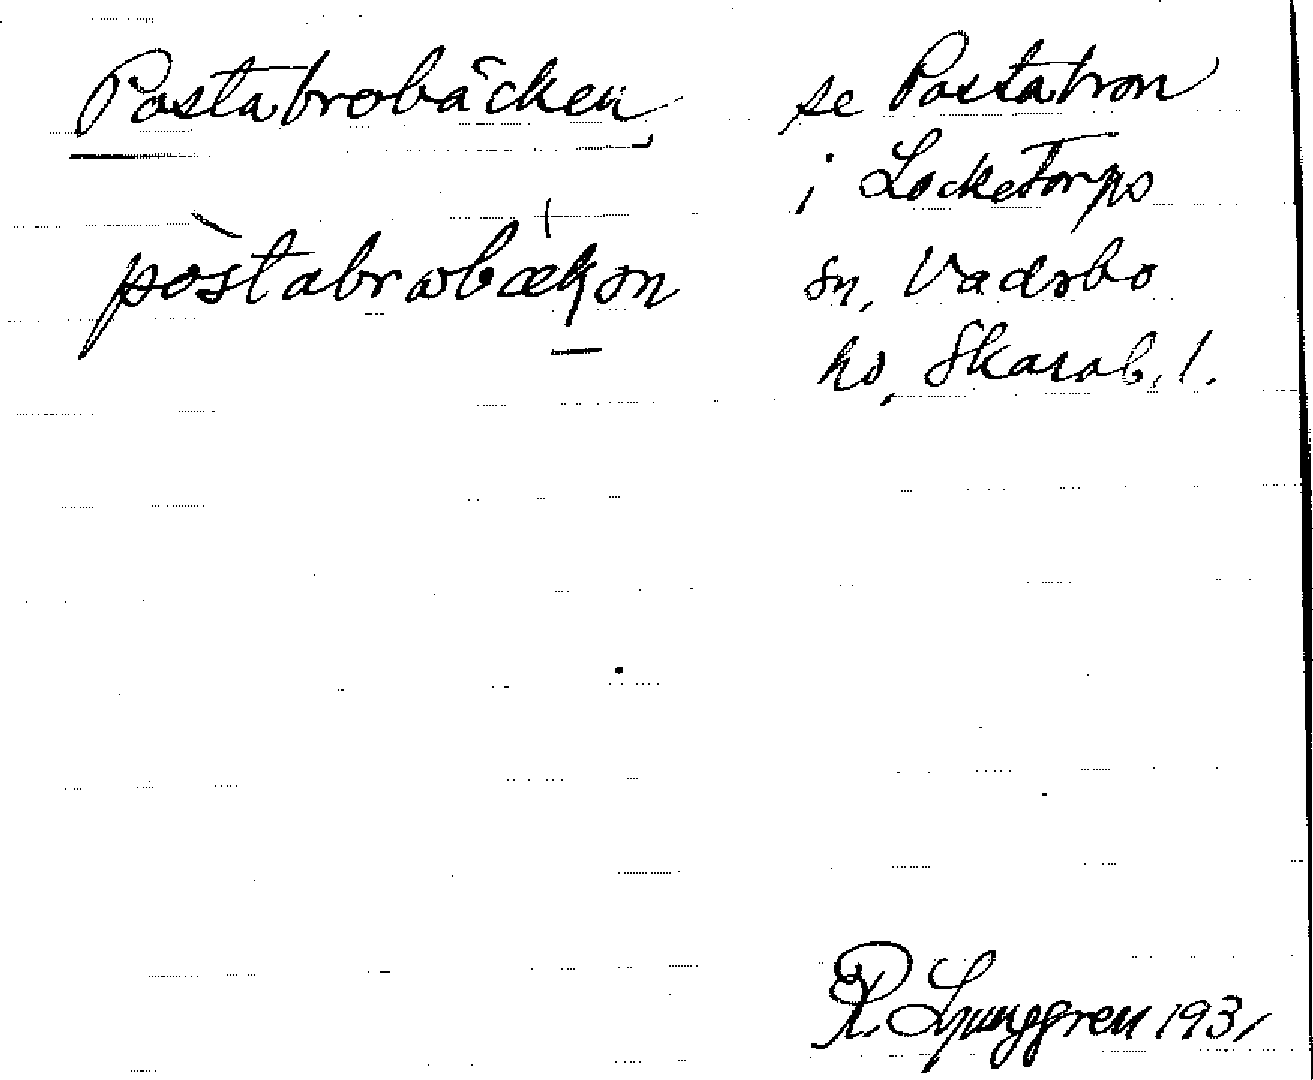 Postabrobäcken,
pòstabrωbækən
se Postabron
i Locketorps
sn, Vadsbo
hd, Skarab. l.
R. Ljunggren 1931